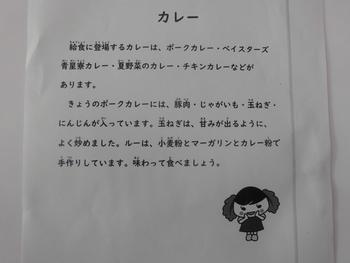 カレー
給食に登場するカレーは、ポークカレー・ベイスターズ
青星寮カレー・夏野菜のカレー・チキンカレーなどが
あります。
きょうのポークカレーには、豚肉・じゃがいも・玉ねぎ・
にんじんが入っています。玉ねぎは、甘みが出るように、
よく炒めました。ルーは、小麦粉とマーガリンとカレー粉で
手作りしています。味わって食べましょう。